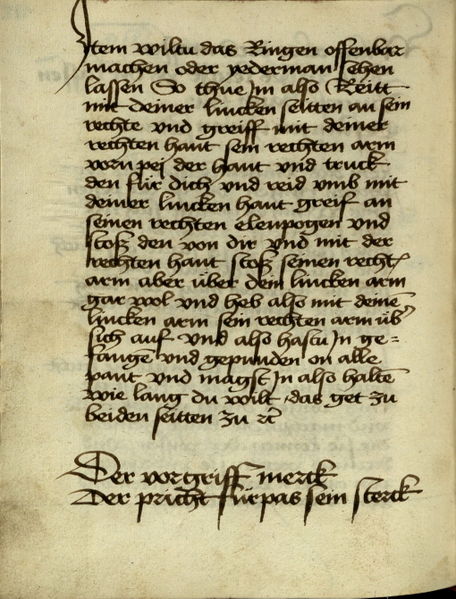 Jtem wiltu das Ringen offenbar
machen oder yederman sehen
lassen So thue Jm also Reitt
mit deiner lincken seitten an sein
rechte vnd greiff mit deiner
rechten hant sein rechten arm
vorn pej der hant vnd truck
den für dich vnd reid vmb mit
deiner lincken hant greif an
seinen rechten elenpogen vnd
stosz den von dir vnd mit der
rechten hant stosz seinen recht̄
arm aber über dein lincken arm
gar wol vnd heb also mit deinē
lincken arm sein rechten arm üb̄
sich auf vnd also hastu Jn ge=
fangē vnd gepunden on alle
pant vnd magst Jn also haltē
wie lang du wilt das get zu
beiden seitten zu ꝛc̄
Der vorgriff merck
Der pricht fürpas sein sterck